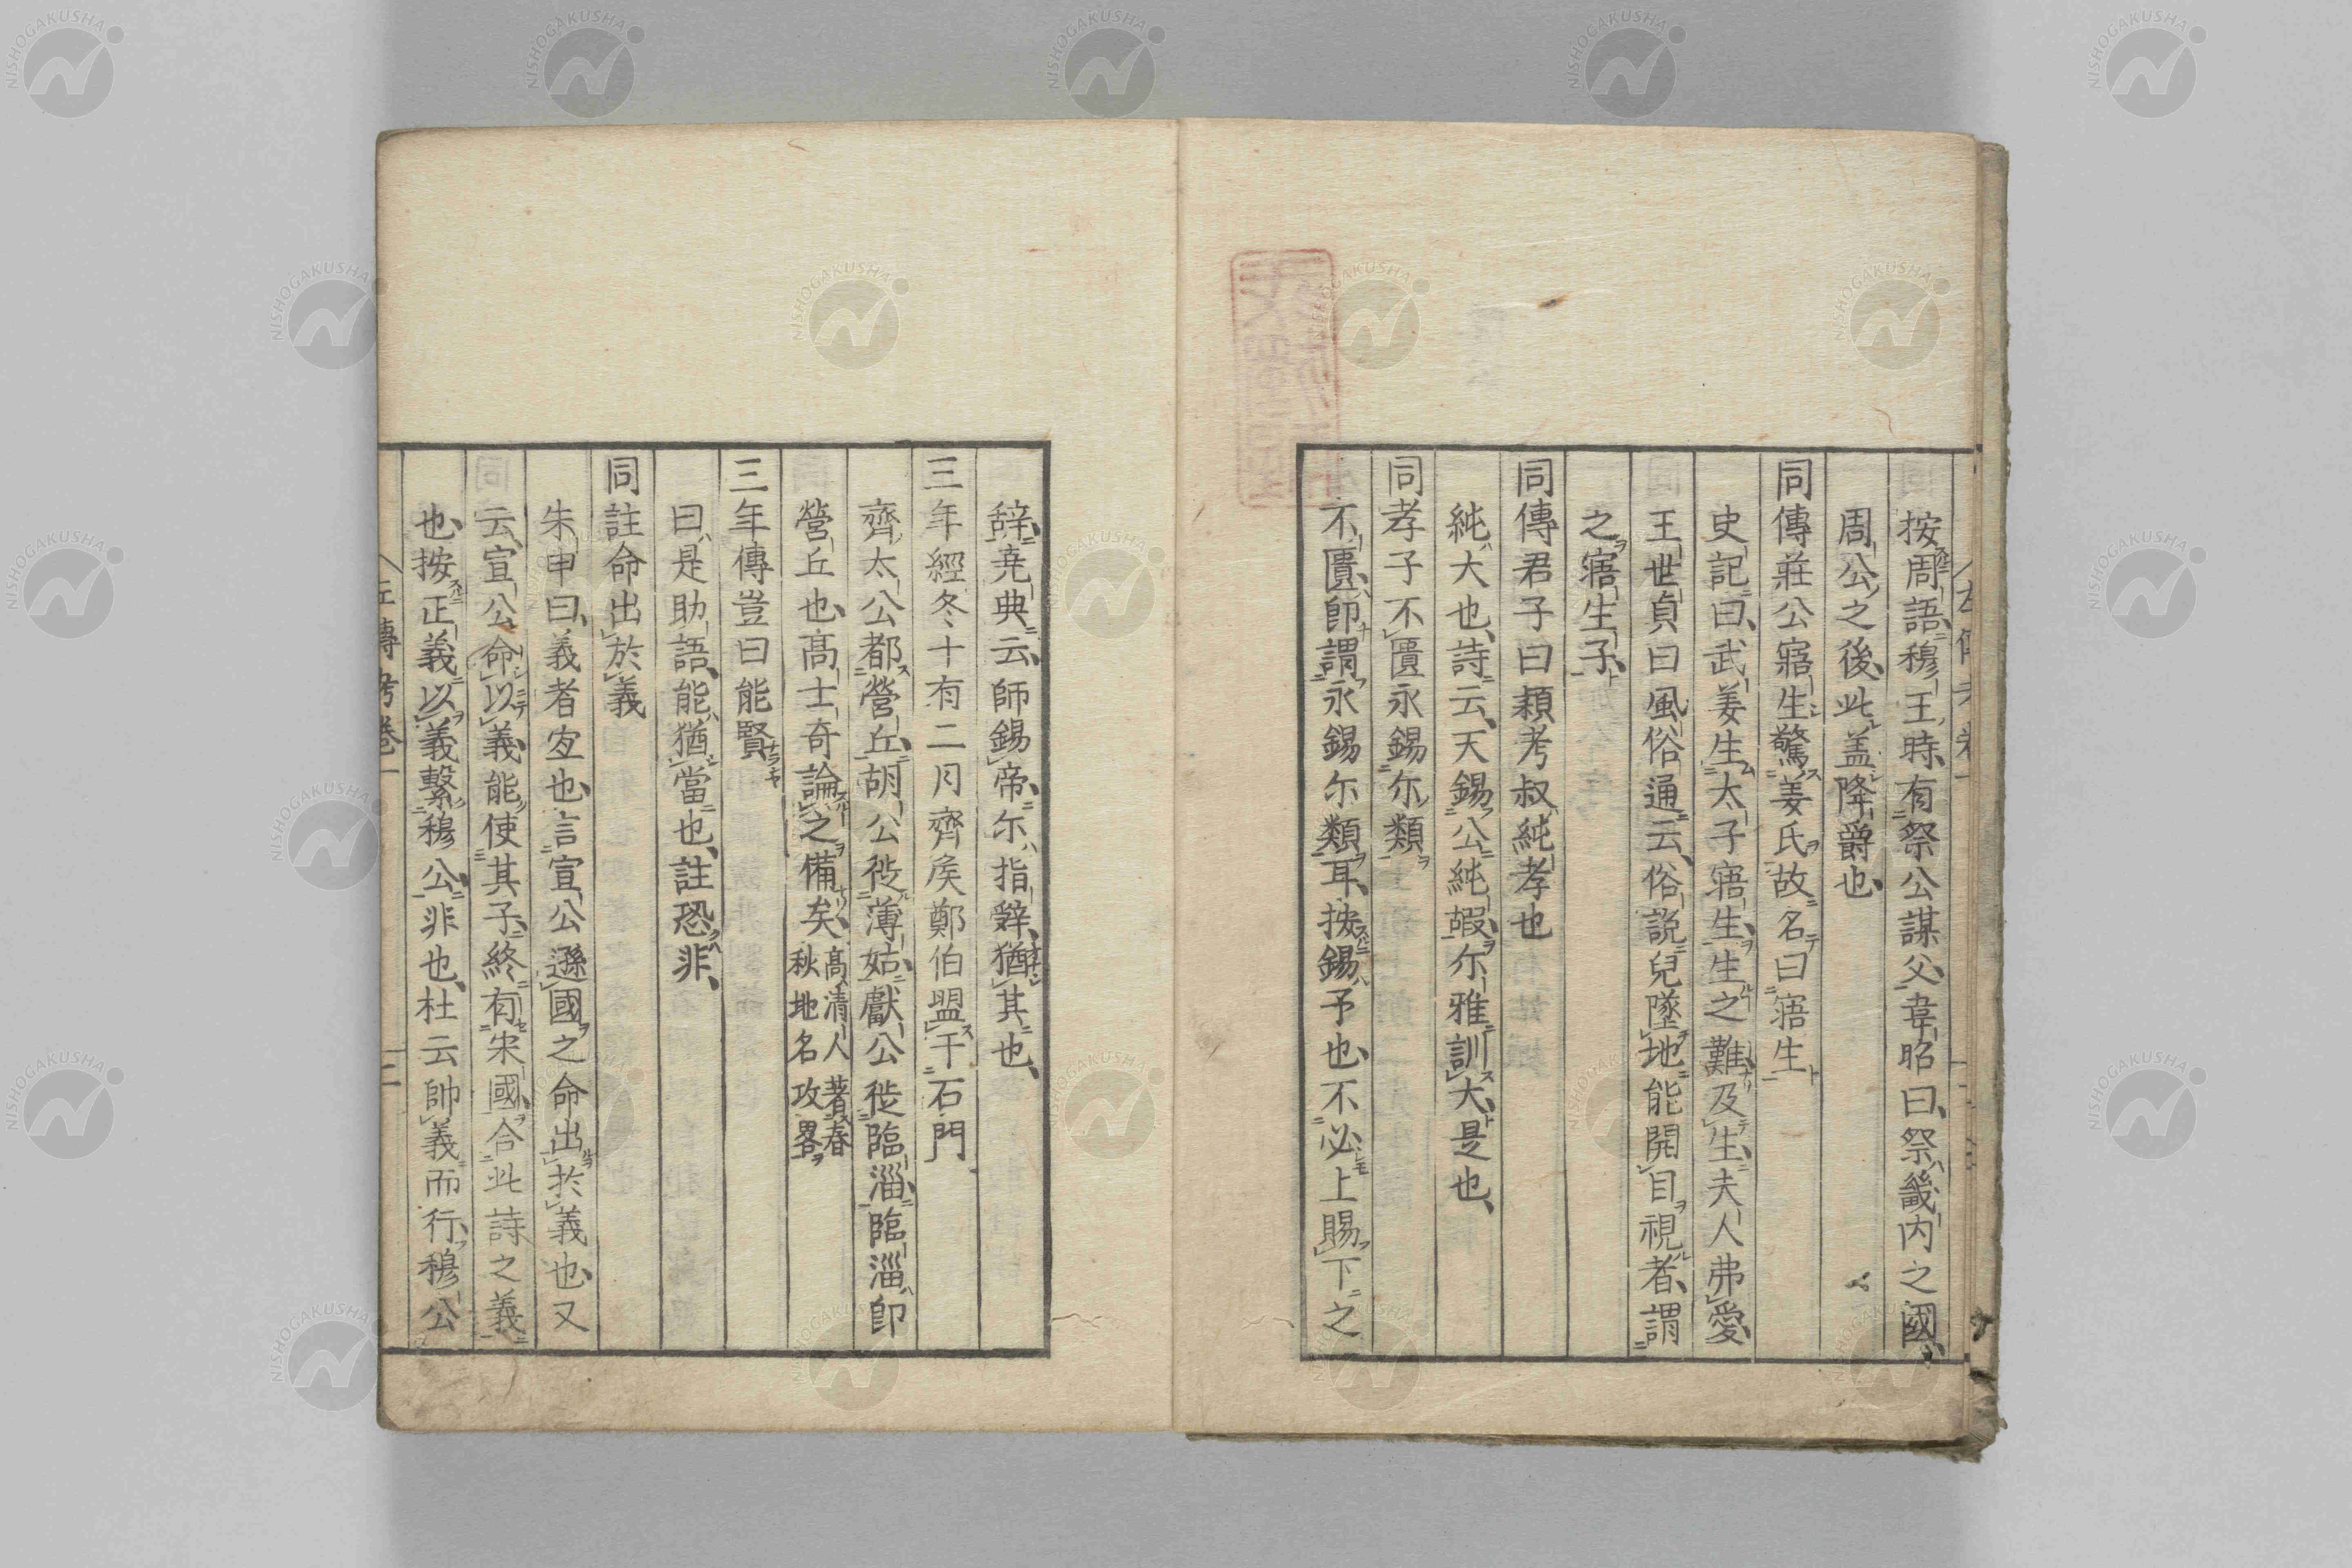 按周語穆王時有祭公謀父韋昭曰祭畿内之國
周公之後此盖降爵也
同傳莊公寤生驚姜氏故名曰寤生
史記曰武姜生太子寤生生之難及生夫人弗愛
王世貞曰風俗通云俗説兒墜地能開目視者謂
之寤生子
同傳君子曰頴考叔純孝也
純大也詩云天錫公純嘏尔雅訓大是也
同孝子不匱永錫尔類
不匱即謂永錫尔類耳按錫予也不必上賜下之
辞尭典云師錫帝尓指辤猶其也
三年經冬十有二月齊矦鄭伯盟于石門
齊太公都營丘胡公徙薄姑獻公徙臨淄臨淄即
營丘也髙士奇論之備矣髙清人著春
秋地名攻畧
三年傳豈曰能賢
曰是助語能猶當也註恐非
同註命出於義
朱申曰義者宐也言宣公遜國之命出於義也又
云宣公命以義能使其子終有宋國合此詩之義
也按正義以義繋穆公非也杜云帥義而行穆公
左傳考卷一
NISHOGAKUSHA